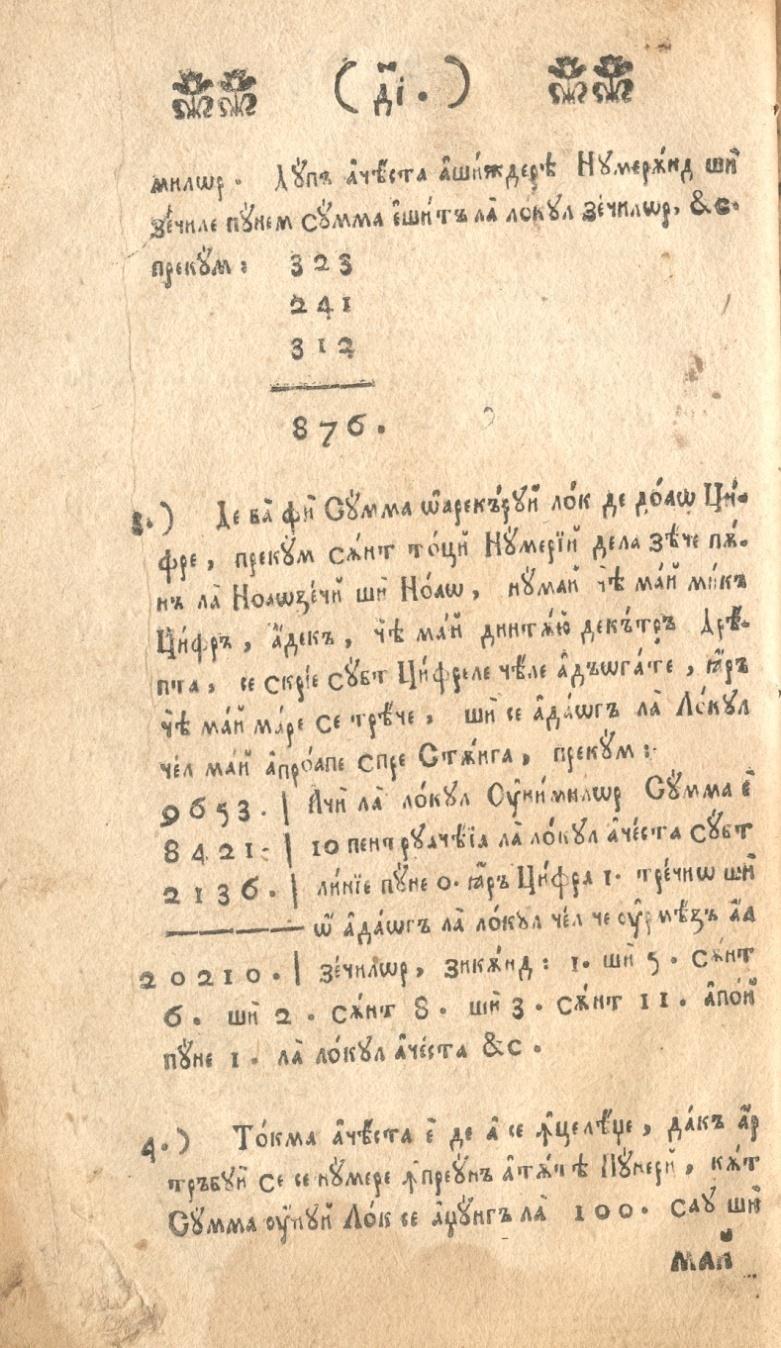 ( д҃і. )
милѡр. Дꙋпъ ачѣста ашиждерѣ Нꙋмерѫнд ши
зе́чиле пꙋнем сꙋмма ешитъ ла ло́кꙋл зе́чилѡр, &c.
прекꙋм: 323
241
312
876.
3.) Де ва фи Сꙋмма ѡарекъ́рꙋи ло́к де до́аѡ Ци́-
фре, прекꙋм сѫ́нт то́ци Нꙋмерїй дела зѣ́че пѫ́-
нъ ла Ноаѡзе́чй ши Но́аѡ, нꙋмай чѣ ма́й ми́къ
Ци́фръ, а́декъ, чѣ ма́й динтѫ́ю декъ́тръ Дрѣ́-
пта, се скрі́е сꙋбт Ци́фреле чѣ́ле адъѡга́те, ꙗръ
чѣ ма́й ма́ре се трѣ́че, ши се ада́ѡгъ ла Ло́кꙋл
че́л ма́й апро́апе спре Стѫ́нга, прекꙋм:
9653. | Ачи ла ло́кꙋл Оу҆ни́милѡр Сꙋмма е
8421. | 10 пентрꙋачѣ́ıа ла ло́кꙋл аче́ста сꙋбт
2136. | ли́нїе пꙋне 0. ꙗръ Ци́фра 1. тре́чиѡ ши
ѡ ада́ѡгъ ла ло́кꙋл че́л че оу҆рмѣ́зъ а́л
20210. | зе́чилѡр, зикѫ́нд: 1. ши 5. сѫ́нт
6. ши 2. сѫ́нт 8. ши 3. сѫ́нт 11. апо́й
пꙋне 1. ла ло́кꙋл аче́ста &c.
4.) То́кма ачѣ́ста е де а се ꙟцелѣ́џе, да́къ ар
тръбꙋи се се нꙋмере ꙟпреꙋнъ атѫ́чѣ Нꙋмери, кѫ́т
Сꙋмма оу҆нꙋи Ло́к се ажꙋнгъ ла 100. саꙋ ши
май